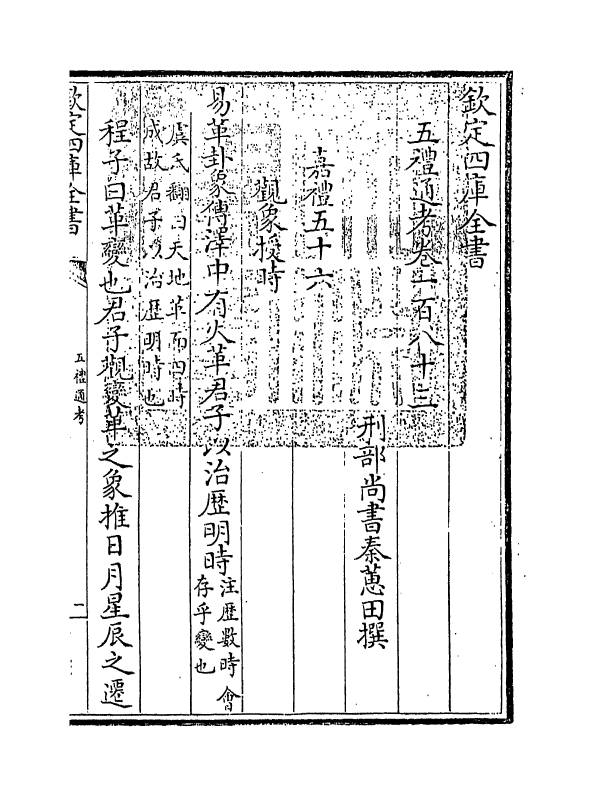 欽定四庫全書
五禮通考卷一百八十三
刑部尚書秦蕙田撰
嘉禮五十六
觀象授時
易革卦象傳澤中有火革君子以治歷明時
注歷數時會
存乎變也
虞氏翻曰天地革而四時
成故君子以治歷明時也
程子曰革變也君子觀變革之象推日月星辰之遷
欽定四庫全書
五禮通考